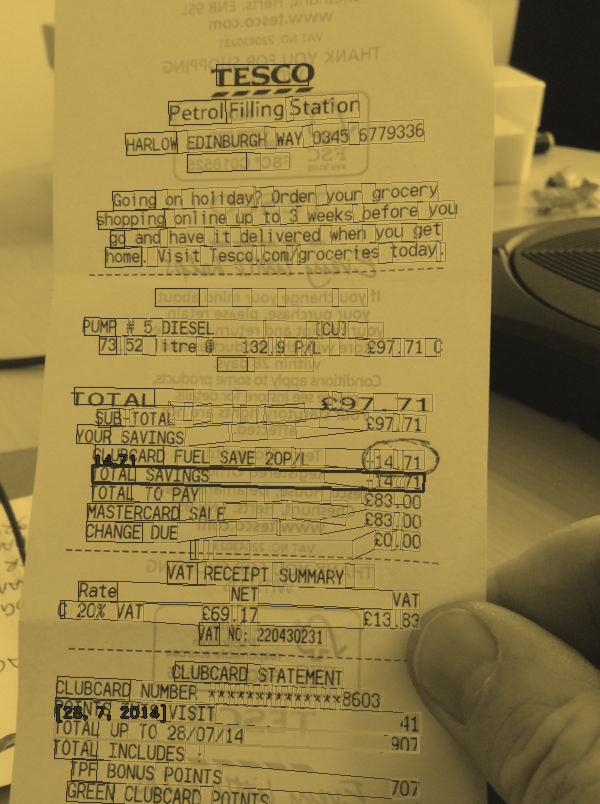 TESCO
Petrol Filling Station
HARLOW EDINBURGH WAY 0345 6779336
Going on holiday? Order your grocery
shopping online up to 3 weeks before you
go and have it delivered when you get
home. Visit Tesco.com/groceries today.
PUMP # 5 DIESEL [CU]
73.52 litre @ 132.9 P/L £97.71 C
TOTAL £97.71
SUB-TOTAL £97.71
YOUR SAVINGS
CLUBCARD FUEL SAVE 20P/L -14.71
14.71
TOTAL SAVINGS -14.71
TOTAL TO PAY £83.00
MASTERCARD SALE £83.00
CHANGE DUE £0.00
VAT RECEIPT SUMMARY
Rate NET VAT
C 20% VAT £69.17 £13.83
VAT NO: 220430231
CLUBCARD STATEMENT
CLUBCARD NUMBER **************8603
VISIT 41
[28, 7, 2014]
TOTAL UP TO 28/07/14 907
TOTAL INCLUDES :
TPF BONUS POINTS 707
GREEN CLUBCARD POINTS